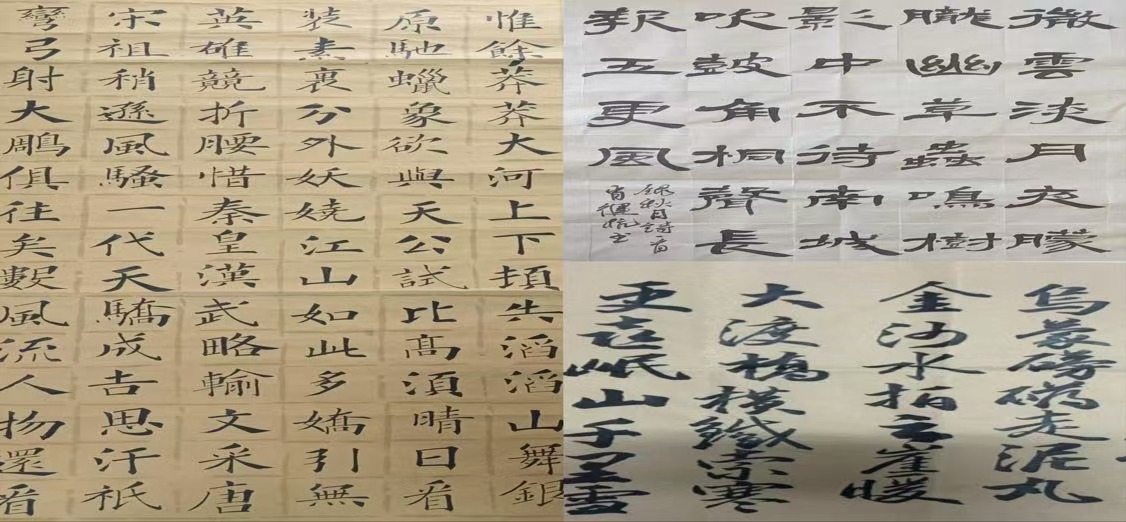 惟餘莽莽大河上下頓失滔滔山舞銀
原馳蠟象欲與天公試比高須晴日看
装素裹分外妖嬈江山如此多嬌引無
英雄競折腰惜秦皇漢武略輸文采唐
宋祖稍遜風騷一代天驕成吉思汗祇
彎弓射大鵰俱往矣數風流人物還看
微雲淡月夜朦
朧幽草蟲鳴樹
影中不待南城
吹鼓角桐聲長
報五更風
錄秋月詩一首
烏蒙磅礴走泥丸
金沙水拍云崖暖
大渡橋橫鐵索寒
更喜岷山千里雪